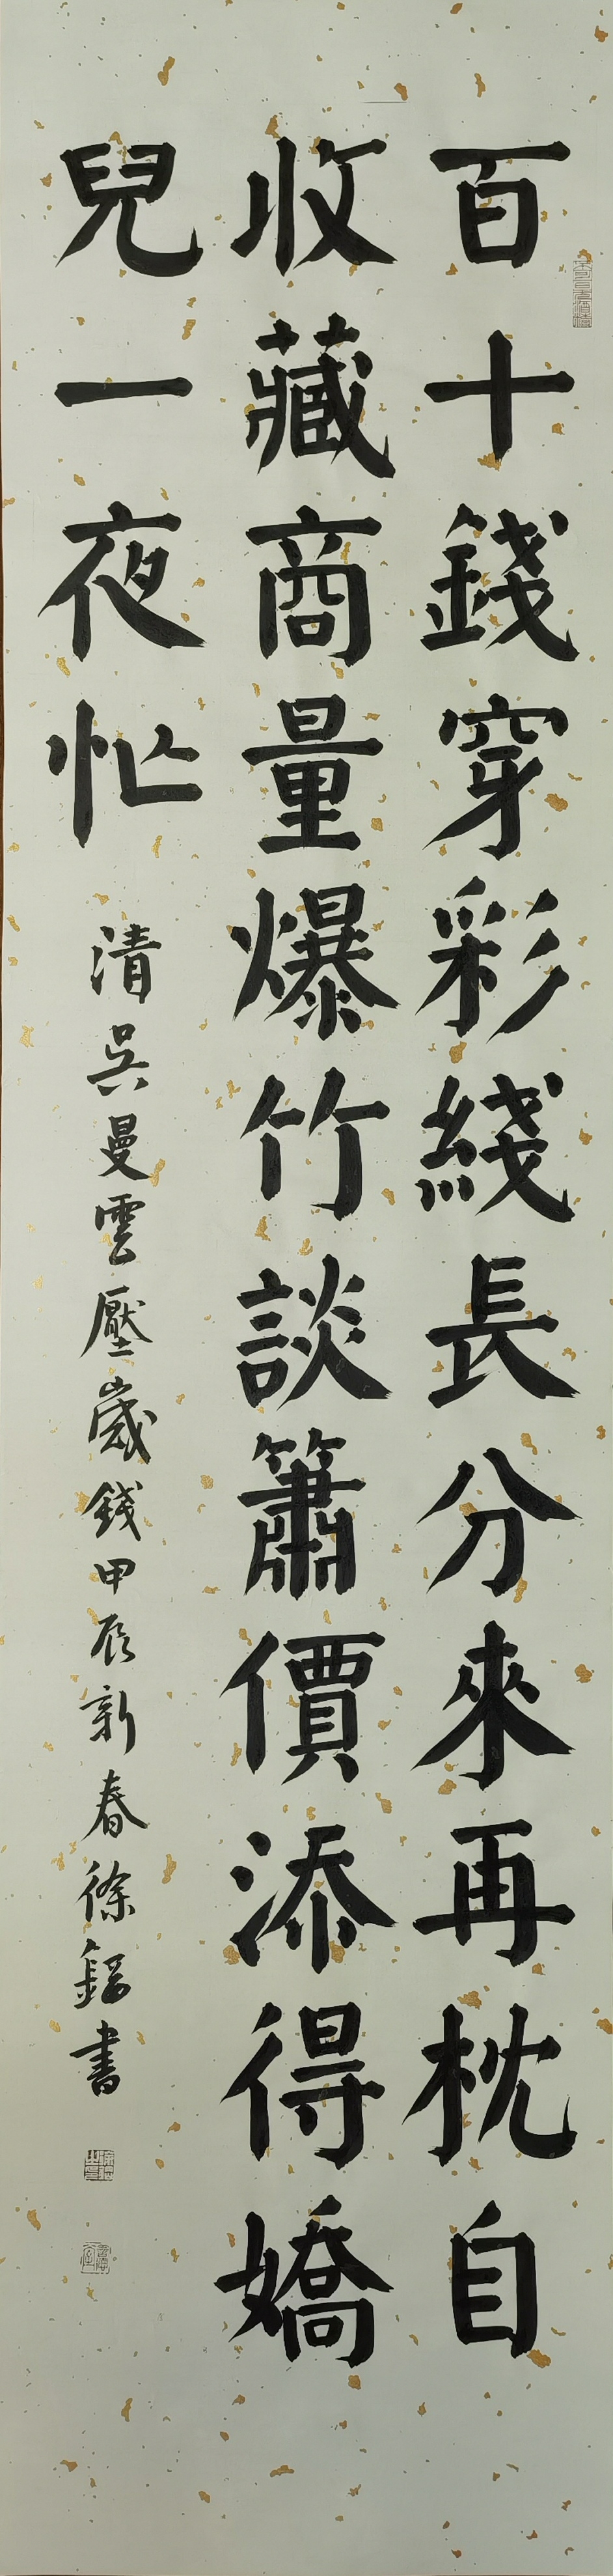 百十錢穿彩綫長分來再枕自
收藏商量爆竹談簫價添得嬌
兒一夜忙
清吳曼雲壓歲錢甲辰新春徐書